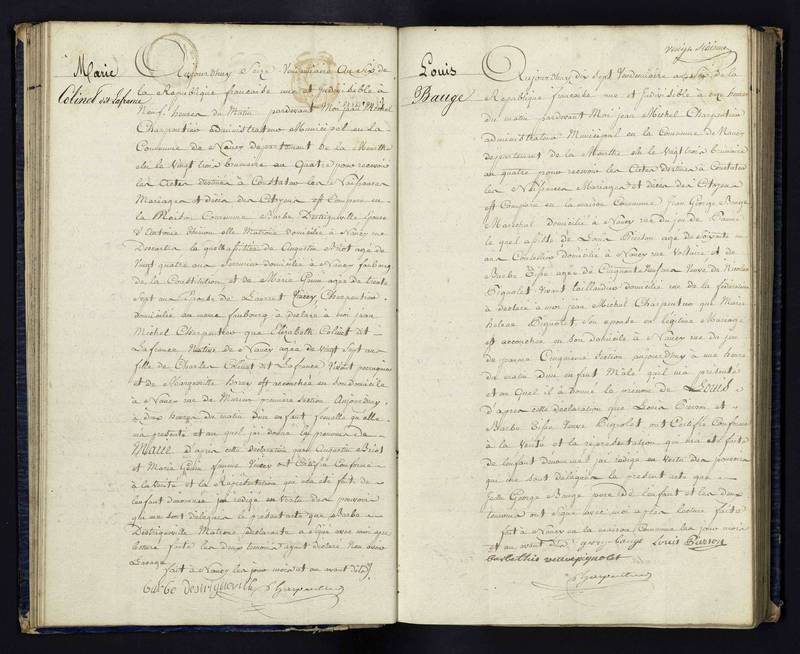 Marie
Colinet dit Lafrance
Aujourdhuy Seize Vendemiaire An Six de
la Republique francaise une et Indivisible à
Neuf heures du Matin pardevant Moi jean Michel
Charpentier administrateur Municipal en la
Commune de Nancy departement de la Meurthe
elu le Vingt trois brumaire au Quatre pour recevoir
les Actes destinés à Constater les Naissances
Mariages et décés des Citoyens est Comparu en
la Maison Commune Barbe Destrigueville épouse
d'Antoine Matrone domiciliée à Nancy rue
la quelle assistée de Augustin Briot agé de
Vingt quatre ans domicilié à Nancy faubourg
de la Constitution et de Marie agée de trente
Sept ans Epouse de Laurent Vacey Charpentier
domiciliée au meme faubourg à déclaré à moi jean
Michel Charpentier que Elizabeth Colinet dit
Lafrance Native de Nancy agée de vingt Sept ans
fille de Charles Colinet dit Lafrance Vivant perruquier
et de Marguerite est accouchée en Son domicile
à Nancy rue de premiere Section Aujourdhuy
à dix heures du matin d'un enfant femelle qu'elle
ma presenté et au quel j'ai donné le prenom de
Marie D'apres cette declaration que Augustin Briot
et Marie femme Vacey ont Certifié Conforme
à la Verité et la Representation qui m'a été fait de
lenfant denommé jai redigé en Vertu des pouvoirs
qui me sont delegués le present acte que Barbe
Destrigueville Matrone declarante a signé avec moi apres
lecture faite les deux temoins ayant declaré Non avoir
l'usage
fait à Nancy les jour mois et an avant dits
barbe destrigueville Charpentier
vingt sixieme
Louis
Bauge
Aujourdhuy dix Sept Vendemiaire an Six de la
Republique francaise une et Indivisible à onze heures
du matin pardevant Moi jean Michel Charpentier
administrateur Municipal en la Commune de Nancy
departement de la Meurthe elu le Vingt trois brumaire
au quatre pour recevoir les Actes destinés à Constater
les Naissances Mariages et décés des Citoyens
est Comparu en la maison Commune Jean George Bauge
Marechal domicilié à Nancy rue du jeu de Paume
le quel assisté de Louis Pierson agé de Soixante un
ans Coutellier domicilié à Nancy rue Voltaire et de
Barbe agée de Cinquante Neuf ans Veuve de Nicolas
Pignolet Vivant taillandier domiciliée rue de la federation
à déclaré à moi jean Michel Charpentier que Marie
helene Pignolet Son epouse en légitime Mariage
est accouchée en Son domicile à Nancy rue du jeu
de paume Cinquieme Section aujourdhuy à une heure
du matin d'un enfant Male qu'il ma presenté
et au Quel il à donné le prenom de Louis
D'apres cette declaration que Louis Pierson et
Barbe Veuve Pignolet ont Certifié Conforme
à la Verité et la representation qui m'a été faite
de lenfant denommé jai redigé en vertu des pouvoirs
qui me sont delegués le present acte que
Jean George Bauge pere de lenfant et les deux
temoins ont signé avec moi apres lecture faite
fait à Nancy en la maison Commune les jour mois
et an avant dits Bauge Louis Pierson
veuve pignolet
Charpentier